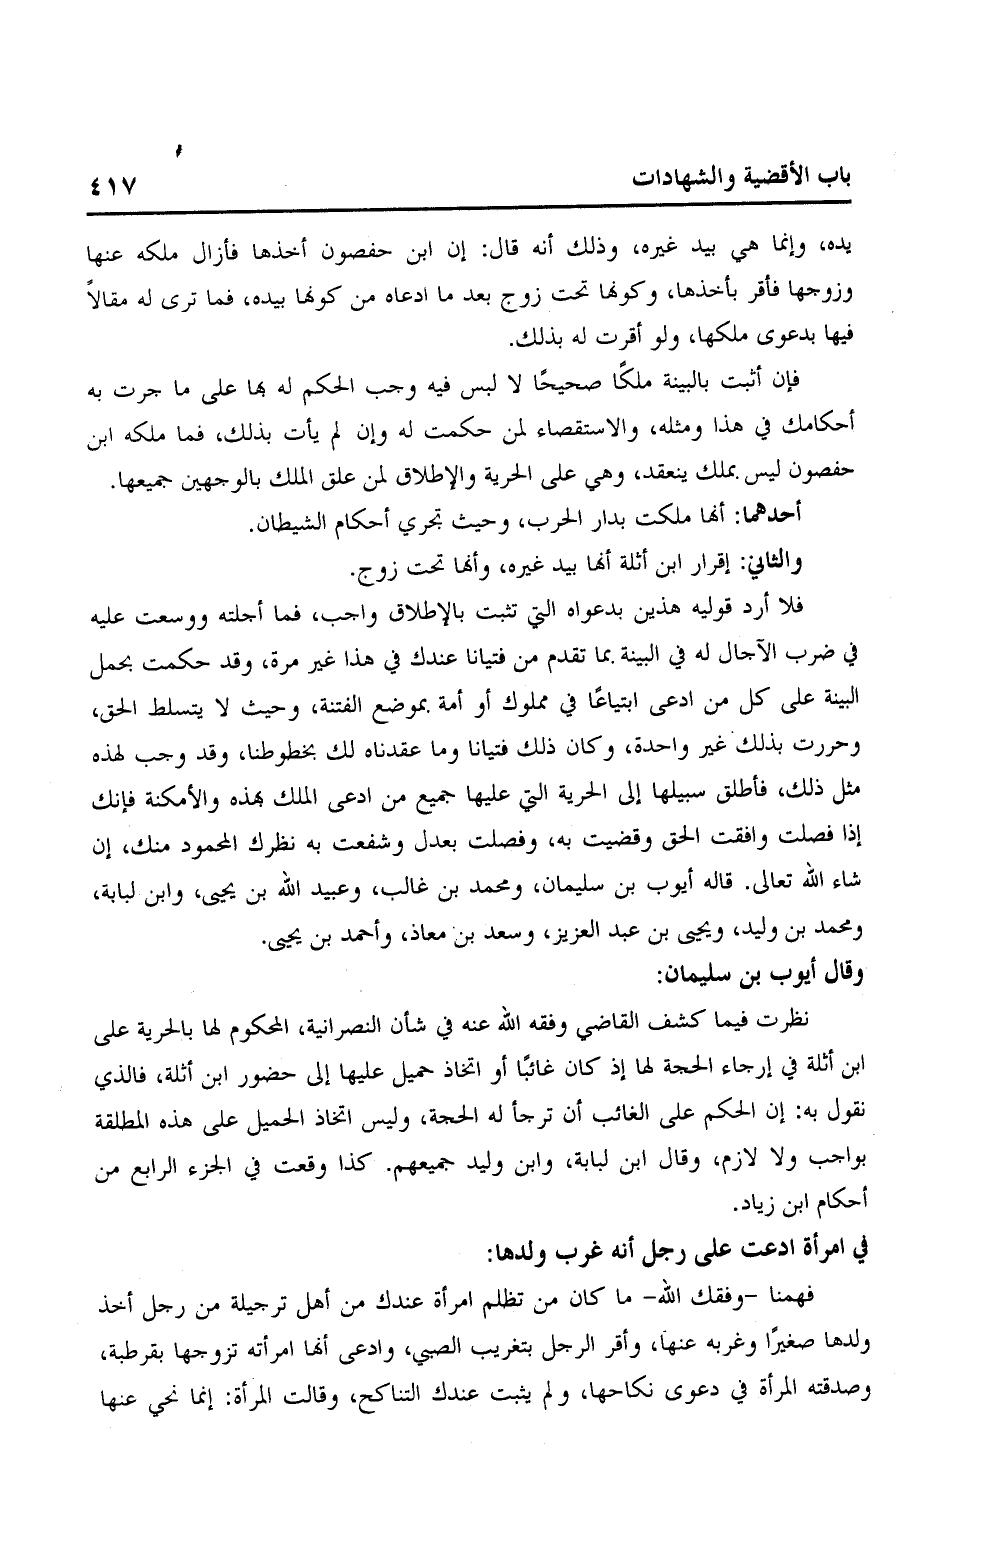 باب الأقضية والشهادات ٤١٧
يده، وإنما هي بيد غيره، وذلك أنه قال: إن ابن حفصون أخذها فأزال ملكه عنها
وزوجها فأقر بأخذها، وكونها تحت زوج بعد ما ادعاه من كونها بيده، فما ترى له مقالاً
فيها بدعوى ملكها، ولو أقرت له بذلك.
فإن أثبت بالبينة ملكًا صحيحًا لا لبس فيه وجب الحكم له بها على ما جرت به
أحكامك في هذا ومثله، والاستقصاء لمن حكمت له وإن لم يأت بذلك، فما ملكه ابن
حفصون ليس بملك ينعقد، وهي على الحرية والإطلاق لمن علق الملك بالوجهين جميعها.
أحدهما: أنها ملكت بدار الحرب، وحيث تجري أحكام الشيطان.
والثاني: إقرار ابن أثلة أنها بيد غيره، وأنها تحت زوج.
فلا أرد قوليه هذين بدعواه التي تثبت بالإطلاق واجب، فما أجلته ووسعت عليه
في ضرب الآجال له في البينة بما تقدم من فتيانا عندك في هذا غير مرة، وقد حكمت بحمل
البينة على كل من ادعى ابتياعًا في مملوك أو أمة بموضع الفتنة، وحيث لا يتسلط الحق،
وحررت بذلك غير واحدة، وكان ذلك فتيانا وما عقدناه لك بخطوطنا، وقد وجب لهذه
مثل ذلك، فأطلق سبيلها إلى الحرية التي عليها جميع من ادعى الملك بهذه والأمكنة فإنك
إذا فصلت وافقت الحق وقضيت به، وفصلت بعدل وشفعت به نظرك المحمود منك، إن
شاء الله تعالى. قاله أيوب بن سليمان، ومحمد بن غالب، وعبيد الله بن يحيى، وابن لبابة،
ومحمد بن وليد، ويحيى بن عبد العزيز، وسعد بن معاذ، وأحمد بن يحيى.
وقال أيوب بن سليمان:
نظرت فيما كشف القاضي وفقه الله عنه في شأن النصرانية، المحكوم لها بالحرية على
ابن أثلة في إرجاء الحجة لها إذ كان غائبًا أو اتخاذ حميل عليها إلى حضور ابن أثلة، فالذي
نقول به: إن الحكم على الغائب أن ترجأ له الحجة، وليس اتخاذ الحميل على هذه المطلقة
بواجب ولا لازم، وقال ابن لبابة، وابن وليد جميعهم. كذا وقعت في الجزء الرابع من
أحكام ابن زياد.
في امرأة ادعت على رجل أنه غرب ولدها:
فهمنا -وفقك الله- ما كان من تظلم امرأة عندك من أهل ترجيلة من رجل أخذ
ولدها صغيرًا وغربه عنها، وأقر الرجل بتغريب الصبي، وادعى أنها امرأته تزوجها بقرطبة،
وصدقته المرأة في دعوى نكاحها، ولم يثبت عندك التناكح، وقالت المرأة: إنما نحي عنها